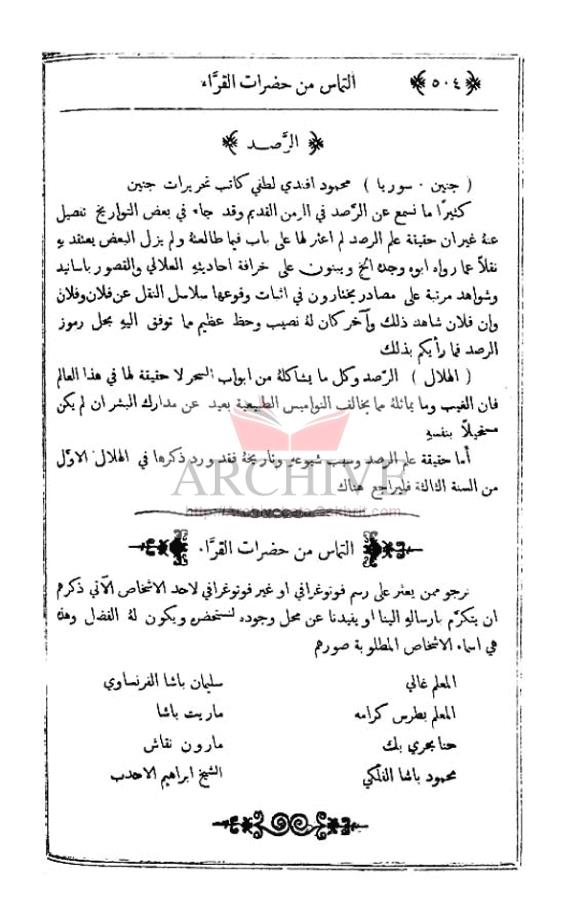 ﴿٥٠٤﴾ التماس من حضرات القرَّاء
﴿ الرَّصد ﴾
( جنين . سوريا ) محمود افندي لطفي كاتب تحريرات جنين
كثيرًا ما نسمع عن الرَّصد في الزمن القديم وقد جاء في بعض التواريخ تفصيل
عنهُ غير ان حقيقة علم الرصد لم اعثر لها على باب فيما طالعتهُ ولم يزل البعض يعتقد بهِ
نقلاً عما رواه ابوه وجده الخ ويبنون على خرافة احاديثهِ العلالي والقصور باسانيد
وشواهد مرتبة على مصادر يختارون في اثبات وقوعها سلاسل النقل عن فلان وفلان
وإن فلان شاهد ذلك وآخر كان لهُ نصيب وحظ عظيم مما توفق اليهِ بحل رموز
الرصد فما رأيكم بذلك
( الهلال ) الرَّصد وكل ما يشاكلهُ من ابواب السحر لا حقيقة لها في هذا العالم
فان الغيب وما يماثلهُ مما يخالف النواميس الطبيعية بعيد عن مدارك البشر ان لم يكن
مستحيلاً بنفسهِ
أما حقيقة علم الرصد وسبب شيوعهِ وتاريخهُ فقد ورد ذكرها في الهلال الاوَّل
من السنة الثالثة فليراجع هناك
ARCHIVE
التماس من حضرات القرَّاء
نرجو ممن يعثر على رسم فوتوغرافي او غير فوتوغرافي لاحد الاشخاص الآتي ذكرهم
ان يتكرَّم بارسالهِ الينا او يفيدنا عن محل وجوده لنستحضره ويكون لهُ الفضل وهذه
هي اسماء الاشخاص المطلوبة صورهم
المعلم غالي سليمان باشا الفرنساوي
المعلم بطرس كرامه ماريت باشا
حنا بحري بك مارون نقاش
محمود باشا الفلكي الشيخ ابراهيم الاحدب